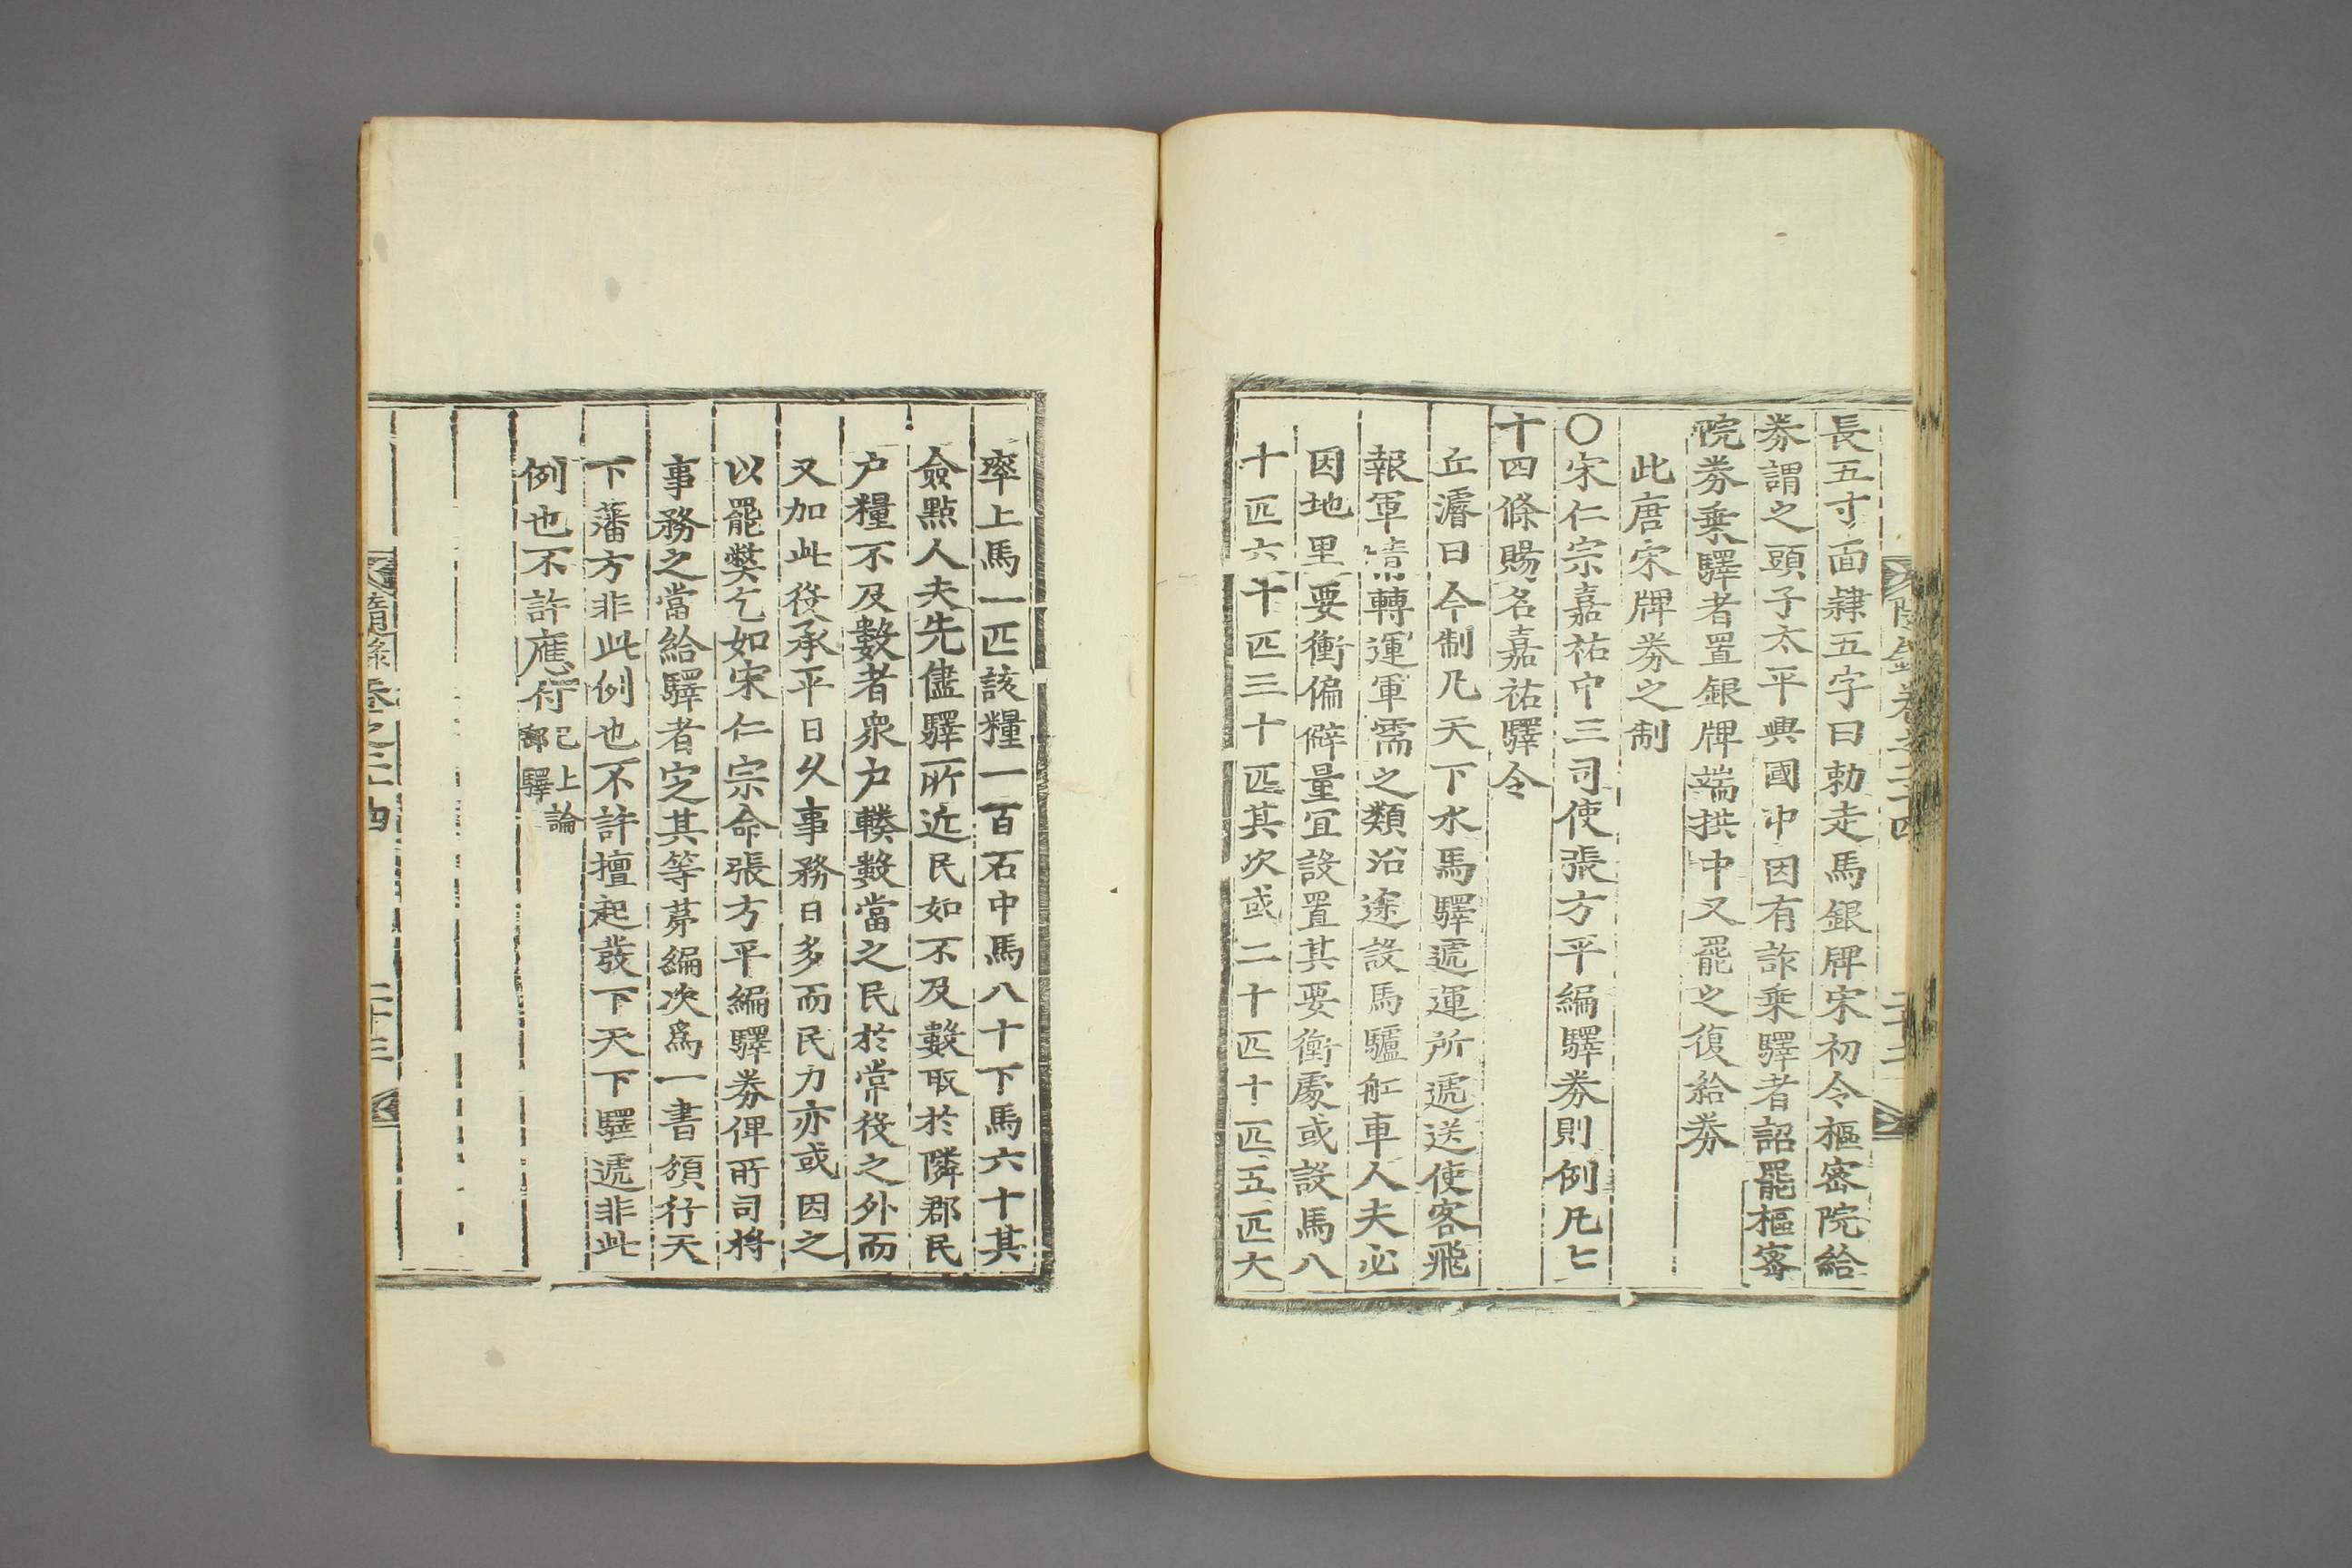 長五寸面隷五字曰勅走馬銀牌宋初令樞密院給
券謂之頭子太平興國中因有詐乗驛者詔罷樞密
院券乗驛者置銀牌端拱中又罷之復給券
此唐宋牌券之制
○宋仁宗嘉祐中三司使張方平編驛券則例凡七
十四條賜名嘉祐驛令
丘濬曰今制凡天下水馬驛遞運所遞送使客飛
報軍情轉運軍需之類沿途設馬驢舡車人夫必
因地里要衝偏僻量宜設置其要衝處或設馬八
十匹六十匹三十匹其次或二十匹十匹五匹大
率上馬一匹該糧一百石中馬八十下馬六十其
僉點人夫先儘驛所近民如不及數取於隣郡民
户糧不及數者衆户輳數當之民於常役之外而
又加此役承平日久事務日多而民力亦或因之
以罷弊乞如宋仁宗命張方平編驛券俾所司將
事務之當給驛者定其等茅編次爲一書頒行天
下藩方非此例也不許擅起發下天下驛遞非此
例也不許應付已上論郵驛
卷之二十四
二十三